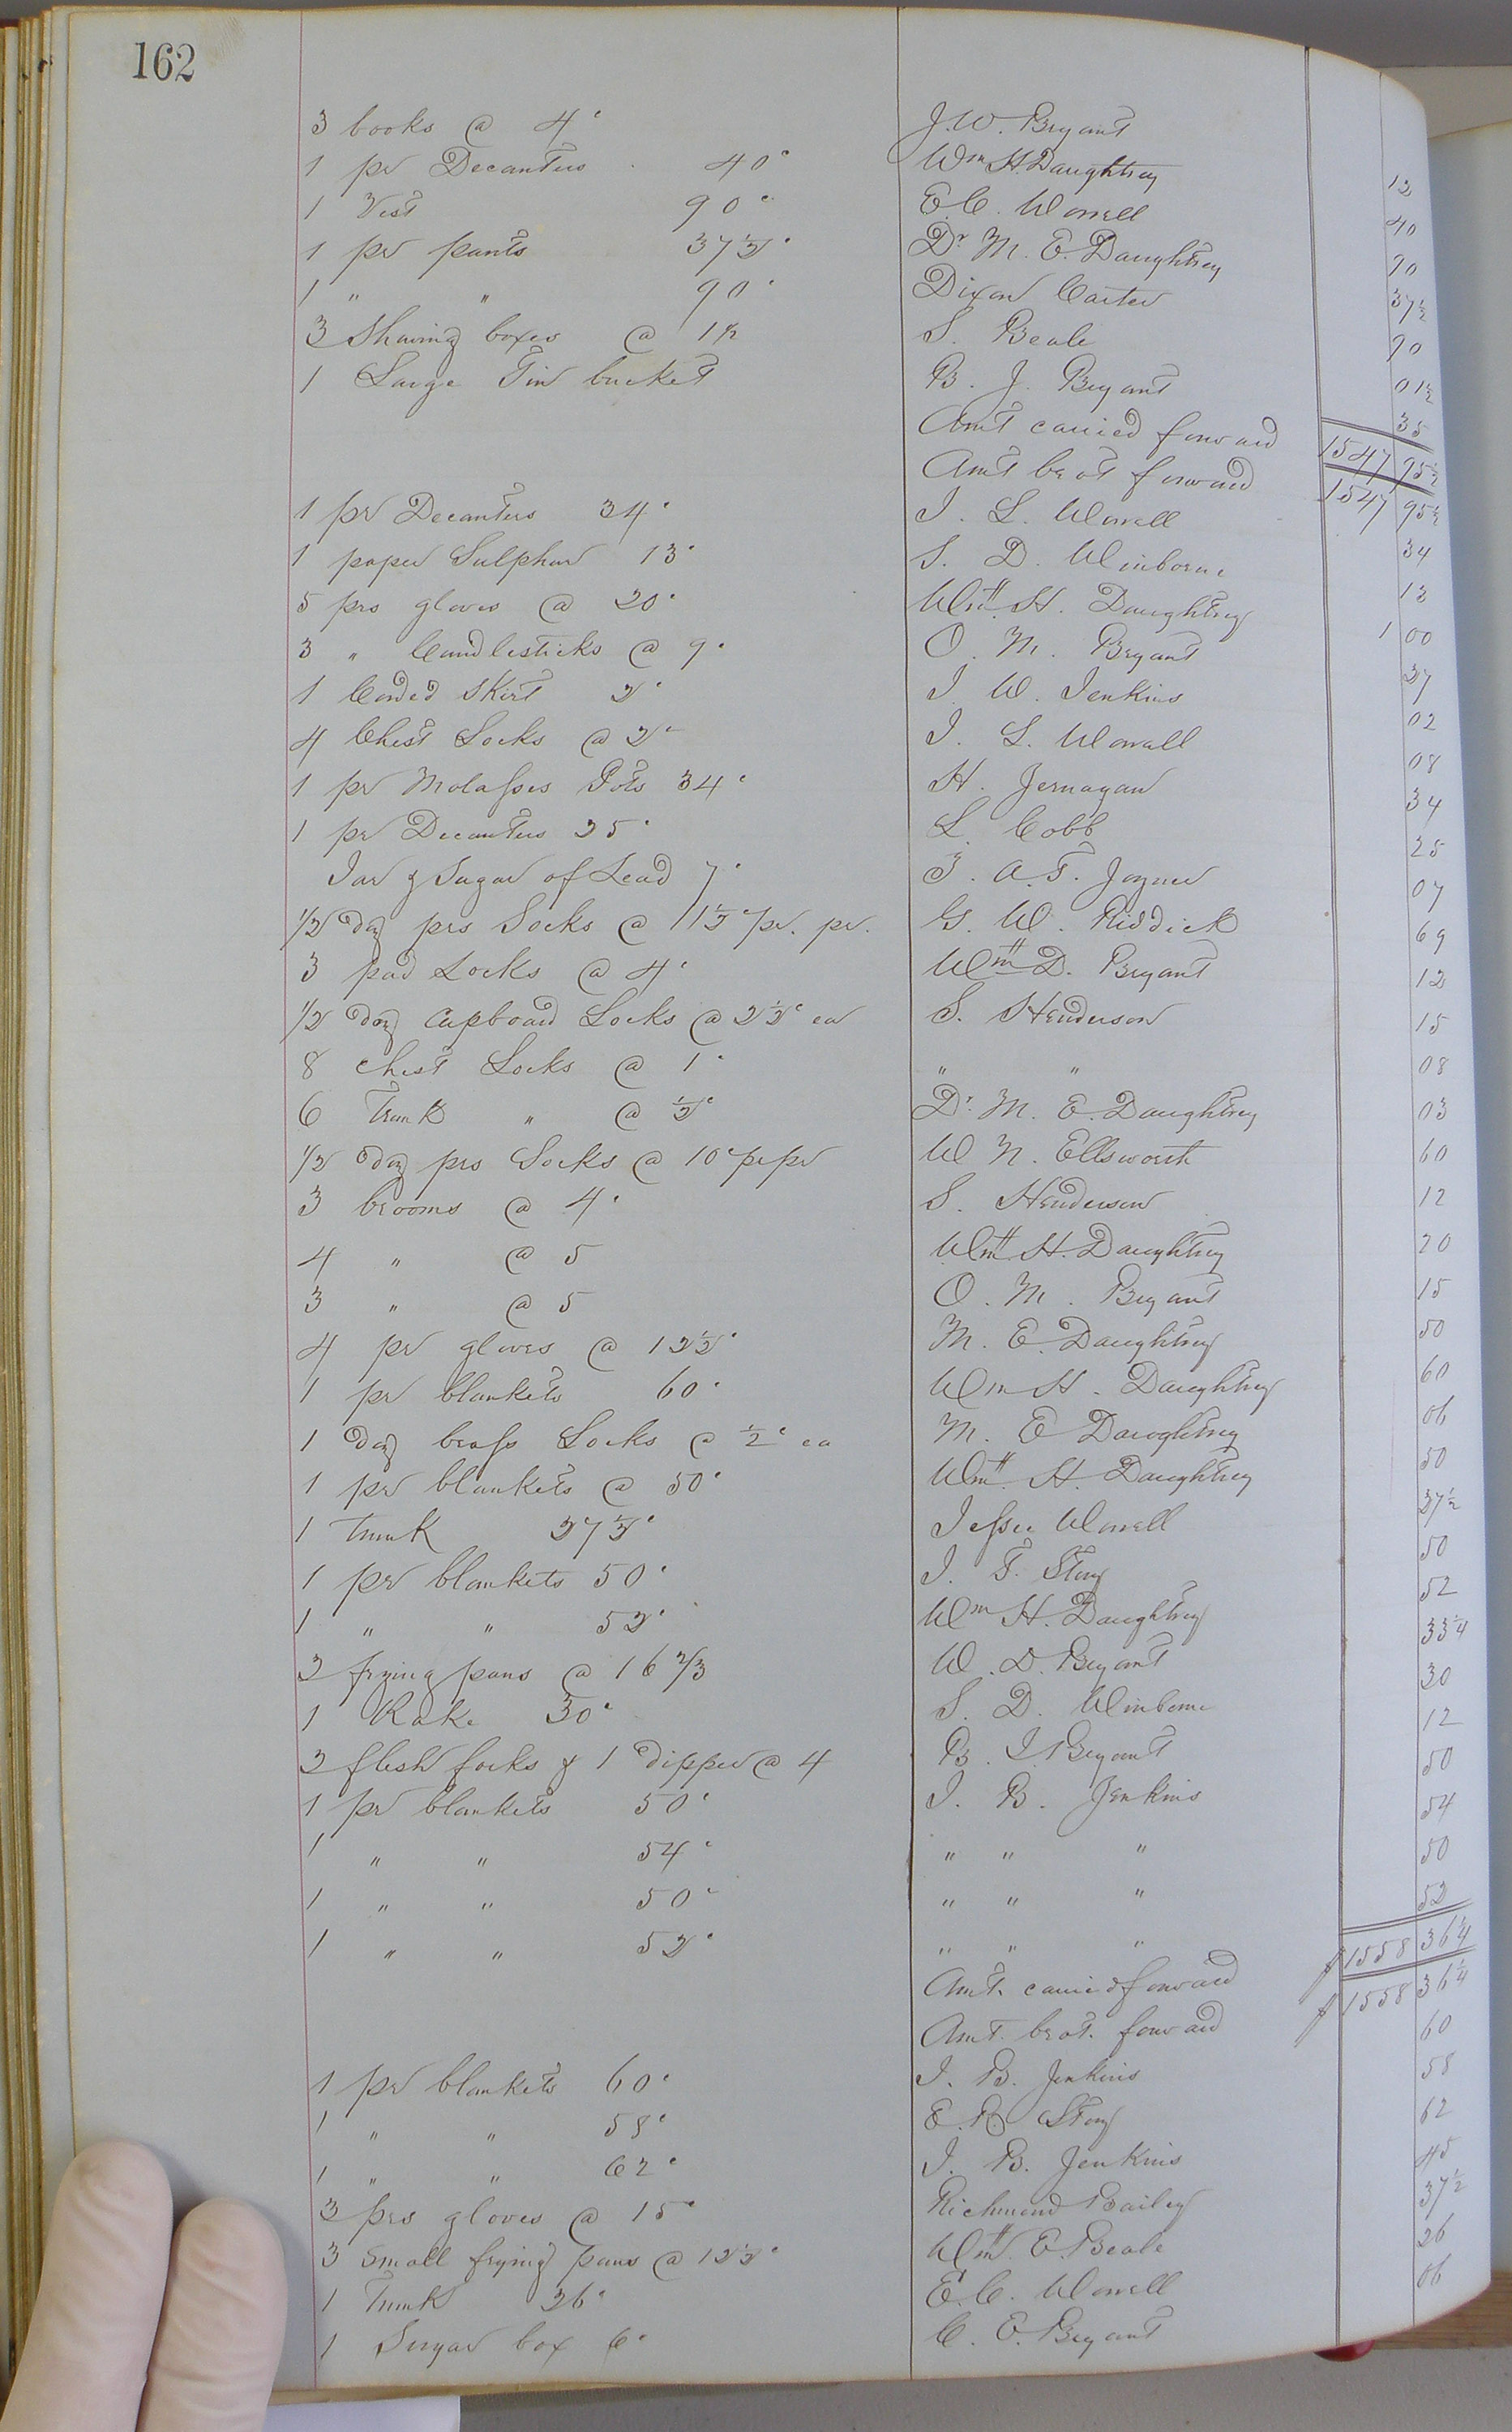 162
3 books @ 4c J. W. Bryant 12
1 pr Decanters 40c Wm H. Daughtrey 40
1 Vest 90c E. C. Worrell 90
1 pr pants 37½c Dr M. E. Daughtrey 37½
1 " " 90c Dixon Carter 90
3 Shaving boxes @ ½ S. Beale 01½
1 Large Tin bucket B. J. Bryant 35
Amt carried forward 1547 95½
Amt brot forward 1547 95½
1 pr Decanters 34c J. L. Worrell 34
1 paper Sulphur 13c S. D. Winborne 13
5 prs gloves @ 20c Wm H. Daughtrey 1 00
3 " Candlesticks @ 9c O. M. Bryant 27
1 Corded Skirt 2c J. W. Jenkins 02
4 Chest Locks @ 2c J. L. Worrell 08
1 pr Molasses Pots 34c H. Jernagan 34
1 pr Decanters 25c L. Cobb 25
Jar & Sugar of Lead 7c T. A. T. Joyner 07
1/2 doz prs Socks @ 11½c pr. pr. G. W. Riddick 69
3 pad Locks @ 4c Wm D. Bryant 12
1/2 doz Cupboard Locks @ 2½c ea S. Henderson 15
8 Chest Locks @ 1c " " 08
6 Trunk " @ ½c Dr. M. E. Daughtrey 03
1/2 doz prs Socks @ 10c pr pr W N. Ellsworth 60
3 brooms @ 4c S. Henderson 12
4 " @ 5 Wm H. Daughtrey 20
3 " @ 5 O. M. Bryant 15
4 pr gloves @ 12½c M. E. Daughtrey 50
1 pr blankets 60c Wm H. Daughtrey 60
1 doz brass Locks @ ½c ea M. E Daughtrey 06
1 pr blankets @ 50c Wm. H. Daughtrey 50
1 Trunk 37½c Jesse Worrell 37½
1 pr blankets 50c J. T. Story 50
1 " " 52c Wm H. Daughtrey 52
2 frying pans @ 16 2/3 W. D. Bryant 33¼
1 Rake 30c S. D. Winborne 30
2 flesh forks & 1 dipper @ 4 B. J Bryant 12
1 pr blankets 50c J. B. Jenkins 50
1 " " 54c " " " 54
1 " " 50c " " " 50
1 " " 52c " " " 52
Amt. carried forward $1558 36¼
Amt. brot. forward $1558 36¼
1 pr blankets 60c J. B. Jenkins 60
1 " " 58c E. R Story 58
1 " " 62c J. B. Jenkins 62
3 prs gloves @ 15c Richmond Bailey 45
3 Small frying pans @ 12½c Wm. E. Beale 37½
1 Trunk 26c E. C. Worrell 26
1 Sugar box 6c C. E. Bryant 06